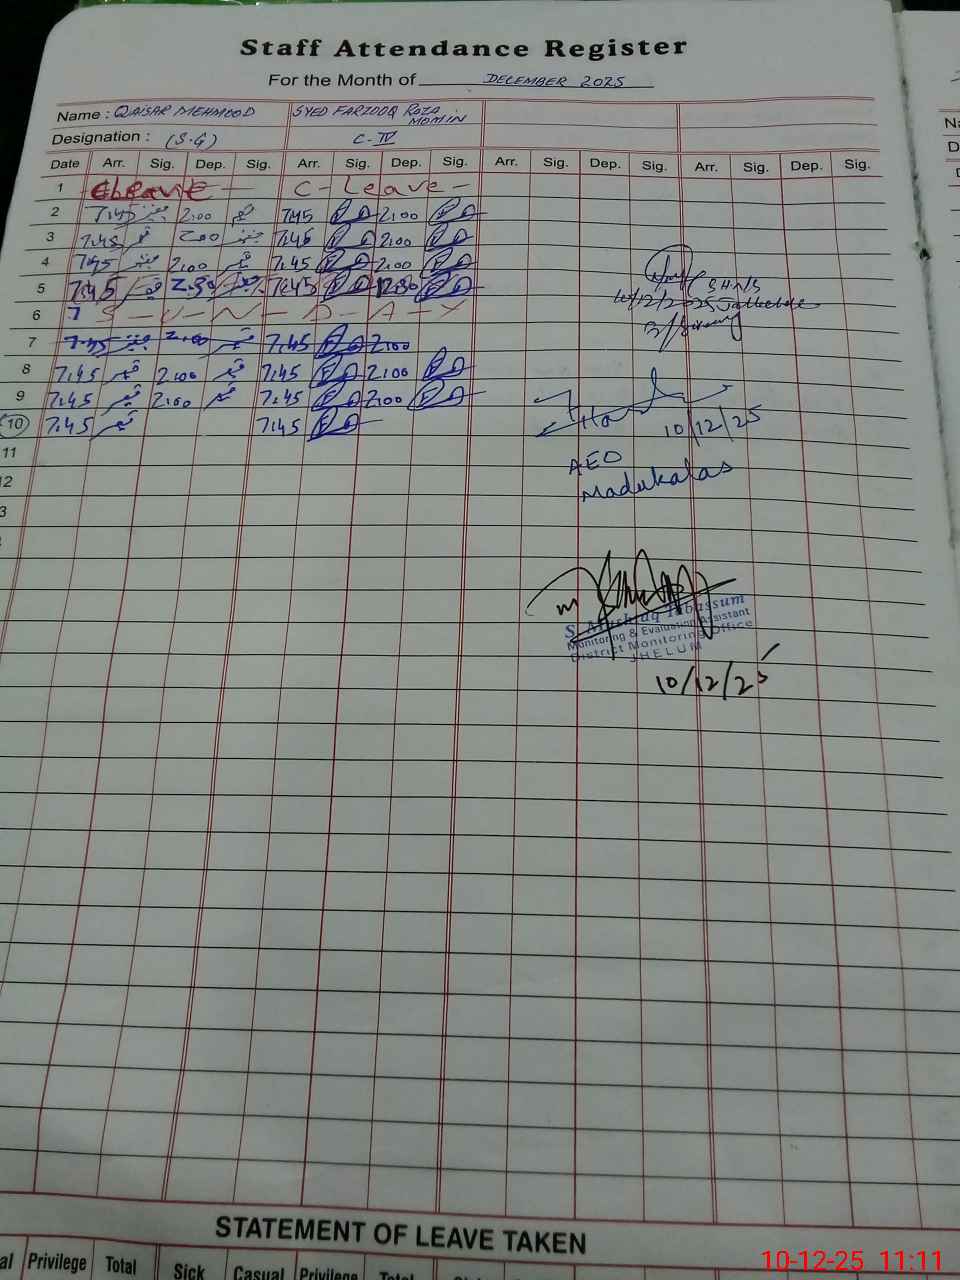 Staff Attendance Register
For the Month of DECEMBER 2025
Name : QAISAR MEHMOOD SYED FAROOQ RAZA MOMIN
Designation : (S.G) C-IV
Date Arr. Sig. Dep. Sig. Arr. Sig. Dep. Sig. Arr. Sig. Dep. Sig. Arr. Sig. Dep. Sig.
1 C-Leave - C-Leave -
2 7.45 2:00 7.45 2:00
3 7.45 2:00 7.45 2:00
4 7.45 2:00 7.45 2:00
5 7.45 7.45
6 S-U-N-D-A-Y
7 7.45 2:00 7.45 2:00
8 7.45 2:00 7.45 2:00
9 7.45 2:00 7.45 2:00
10 7.45 7.45
11
12
3
10/12/25
AEO
Madukalas
Tabassum
Monitoring & Evaluation Assistant
District Monitoring Office
JHELUM
10/12/25
STATEMENT OF LEAVE TAKEN
al Privilege Total Sick Casual Privilege Total
10-12-25 11:11